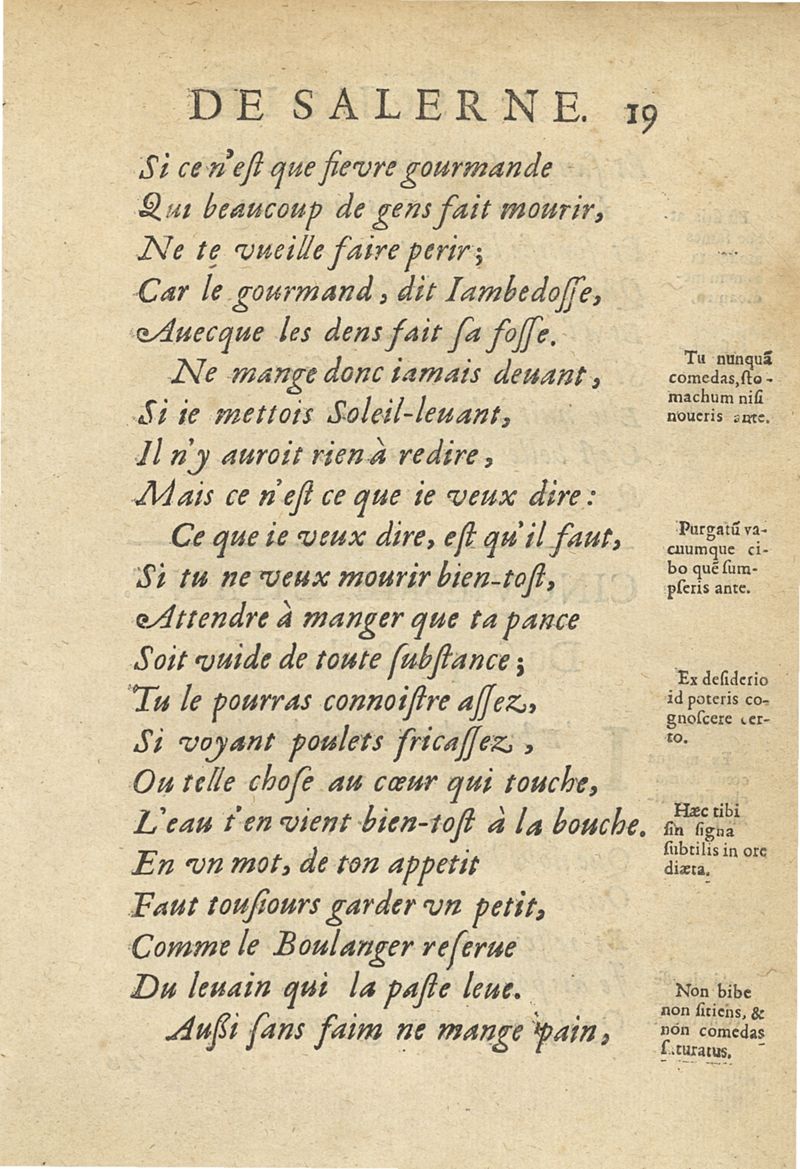 DE SALERNE. 19
Si ce n'eſt que fievre gourmande
Qui beaucoup de gens fait mourir,
Ne te vueille faire perir;
Car le gourmand, dit Iambedoſſe,
Auecque les dens fait ſa foſſe.
Ne mange donc iamais deuant,
Si ie mettois Soleil-leuant,
Il n'y auroit rien à redire,
Mais ce n'eſt ce que ie veux dire:
Ce que ie veux dire, eſt qu'il faut,
Si tu ne veux mourir bien-toſt,
Attendre à manger que ta pance
Soit vuide de toute ſubſtance;
Tu le pourras connoiſtre aſſez,
Si voyant poulets fricaſſez,
Ou telle choſe au cœur qui touche,
L'eau t'en vient bien-toſt à la bouche.
En vn mot, de ton appetit
Faut touſiours garder vn petit,
Comme le Boulanger reſerue
Du leuain qui la paſte leue.
Außi ſans faim ne mange pain,
Tu nunquã
comedas, ſto-
machum niſi
noueris ante.
Purgatũ va-
cuumque ci-
bo quẽ ſum-
pſeris ante.
Ex deſiderio
id poteris co-
gnoſcere cer-
to.
Hæc tibi
ſin ſigna
ſubtilis in ore
diæta.
Non bibe
non ſitiens, &
non comedas
ſaturatus.